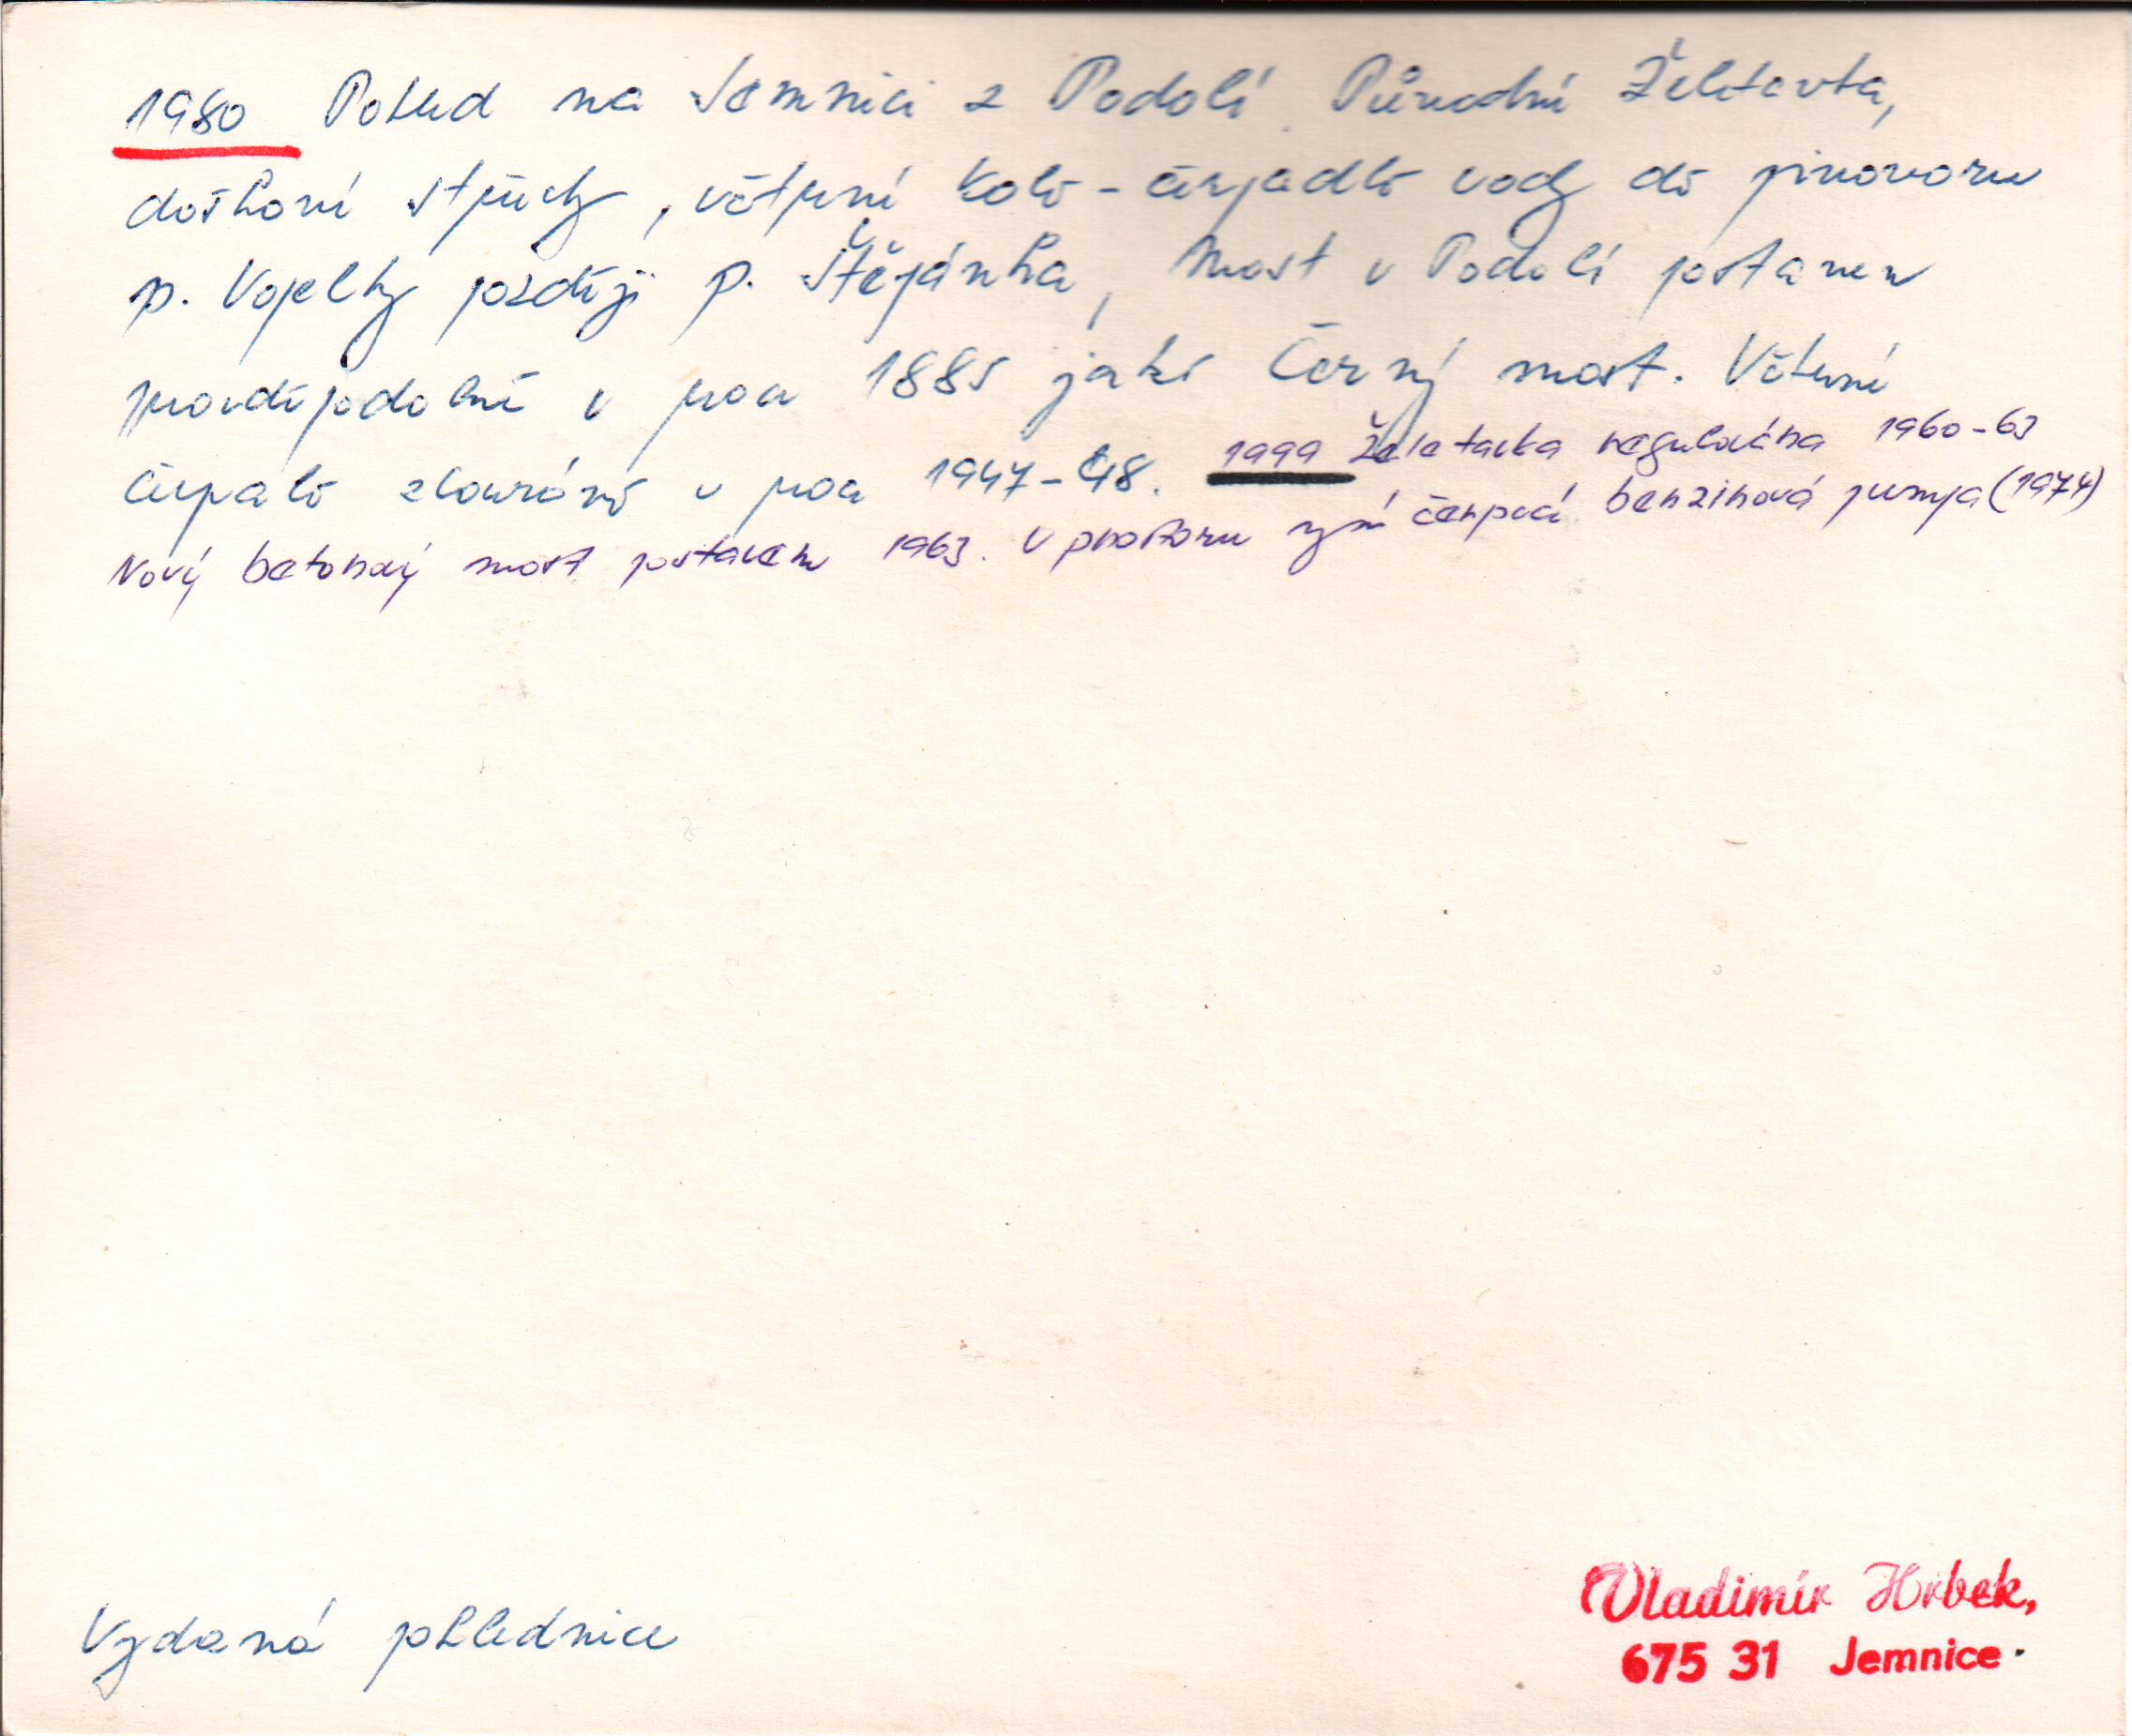 1980 Pohled na Jemnici z Podolí. Původní Želetavka,
došková střechy, větrní kolo - čerpadlo vody do pivovaru
p. Vopelky později p. Štěpánka, Most v Podolí postaven
pravděpodobně v roce 1885 jako Černý most. Větrné
čerpalo zbouráno v roce 1947-48. 1999 Želetavka regulována 1960-63
Nový betonový most postaven 1963. V prostoru nyní čerpací benzinová pumpa (1974)
Vydaná pohlednice
Vladimír Hrbek,
675 31 Jemnice.